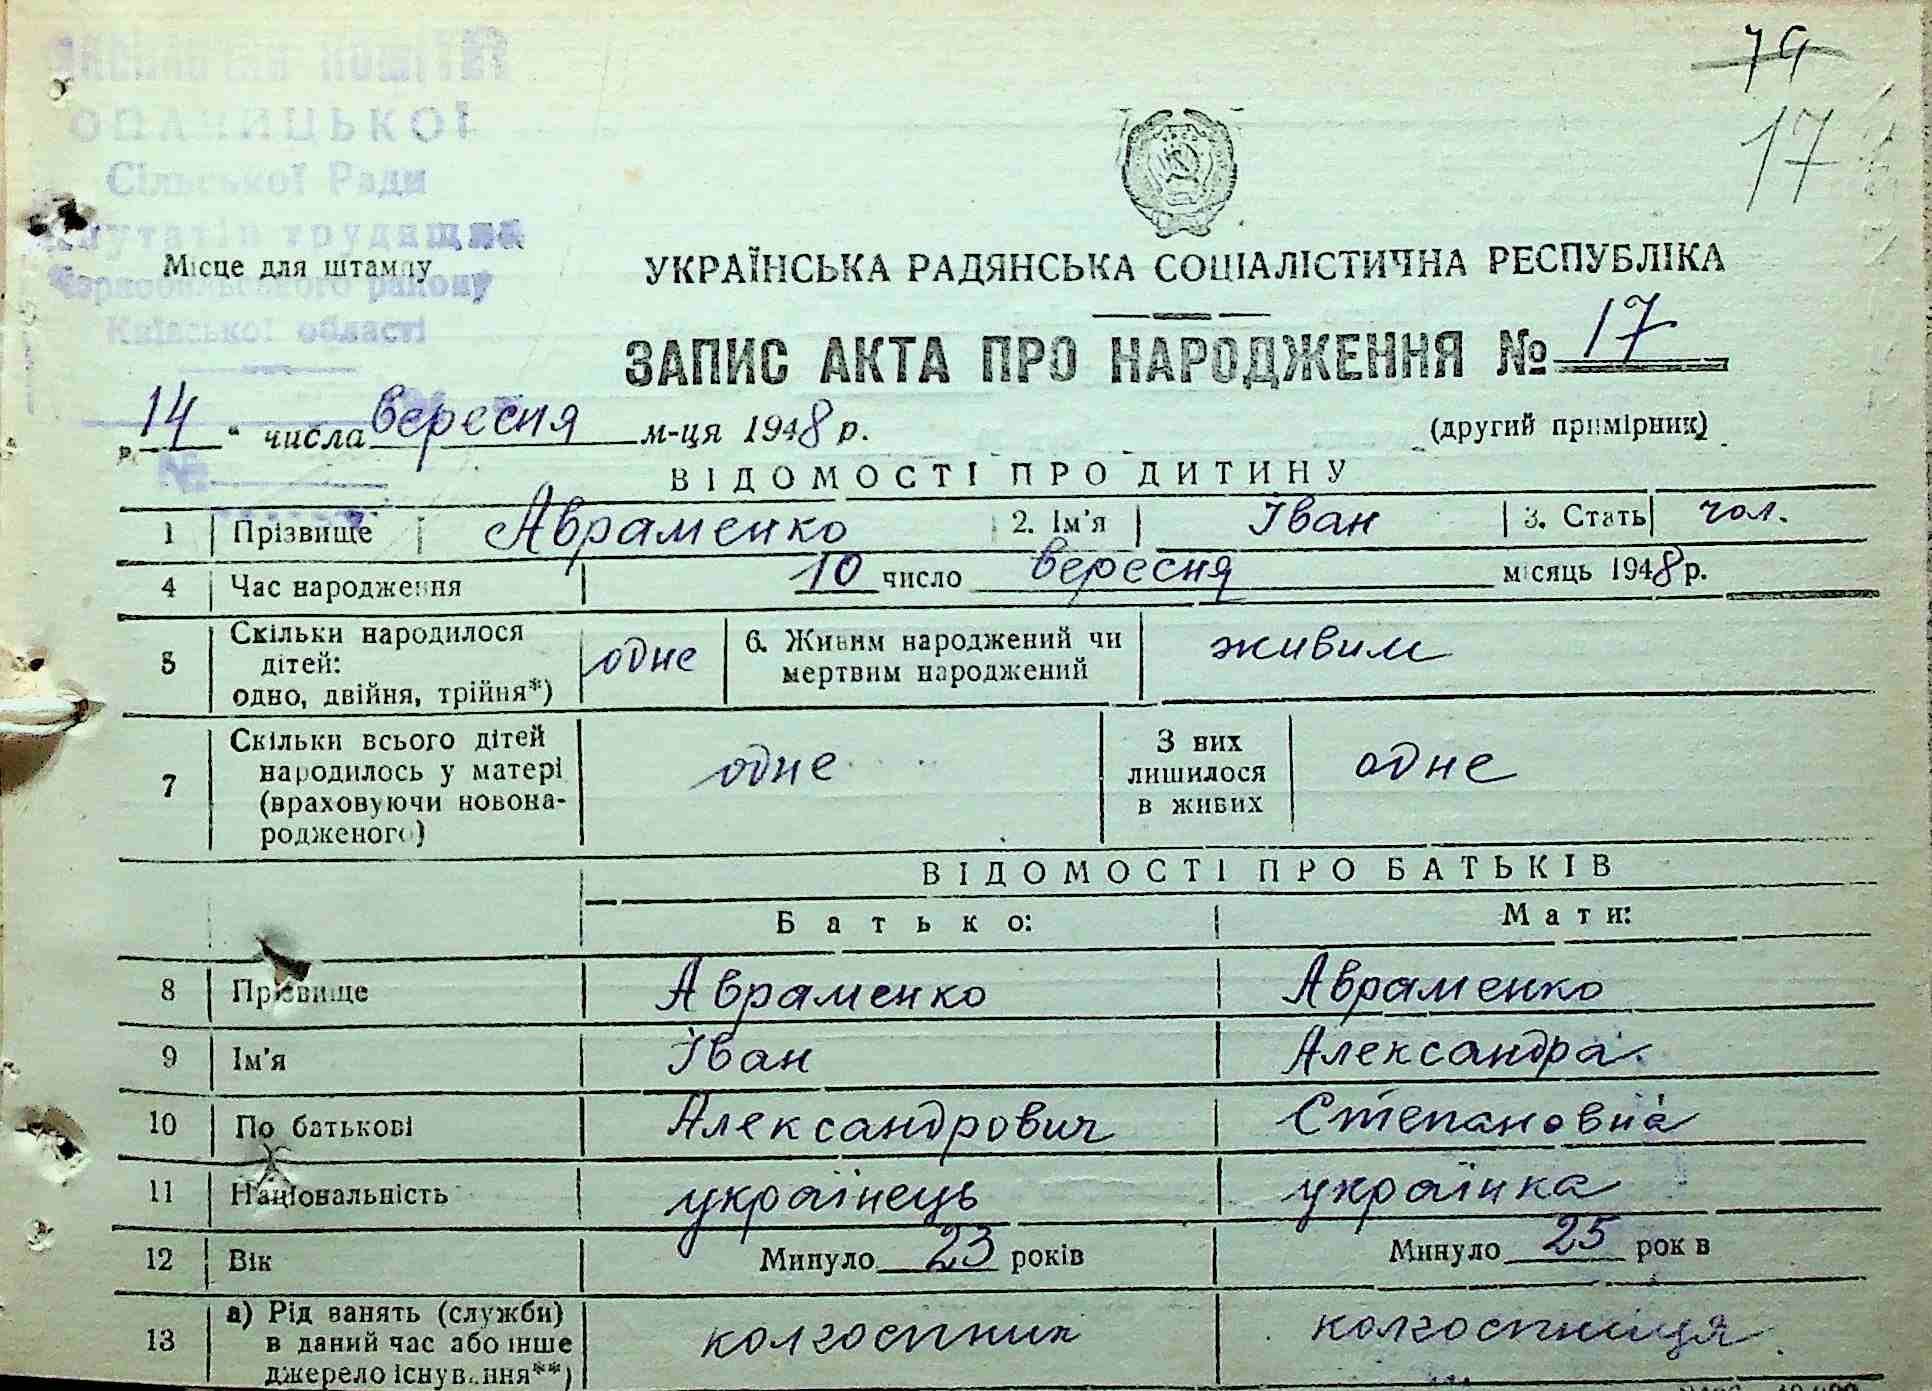 79
17
ОПАЧИЦЬКОЇ
Сільської Ради
депутатів трудящих
Місце для штампу
Чорнобильського району
Київської області
УКРАЇНСЬКА РАДЯНСЬКА СОЦІАЛІСТИЧНА РЕСПУБЛІКА
ЗАПИС АКТА ПРО НАРОДЖЕННЯ № 17
„14“ числа вересня м-ця 1948 р.
(другий примірник)
ВІДОМОСТІ ПРО ДИТИНУ
1 Прізвище Авраменко 2. Ім'я Іван 3. Стать чол.
4 Час народження 10 число вересня місяць 1948 р.
5 Скільки народилося дітей: одно, двійня, трійня*) одне 6. Живим народжений чи мертвим народжений живим
7 Скільки всього дітей народилось у матері (враховуючи новонародженого) одне З них лишилося в живих одне
ВІДОМОСТІ ПРО БАТЬКІВ
Батько: Мати:
8 Прізвище Авраменко Авраменко
9 Ім'я Іван Александра
10 По батькові Александрович Степановна
11 Національність українець українка
12 Вік Минуло 23 років Минуло 25 років
13 а) Рід занять (служби) в даний час або інше джерело існування**) колгоспник колгоспниця